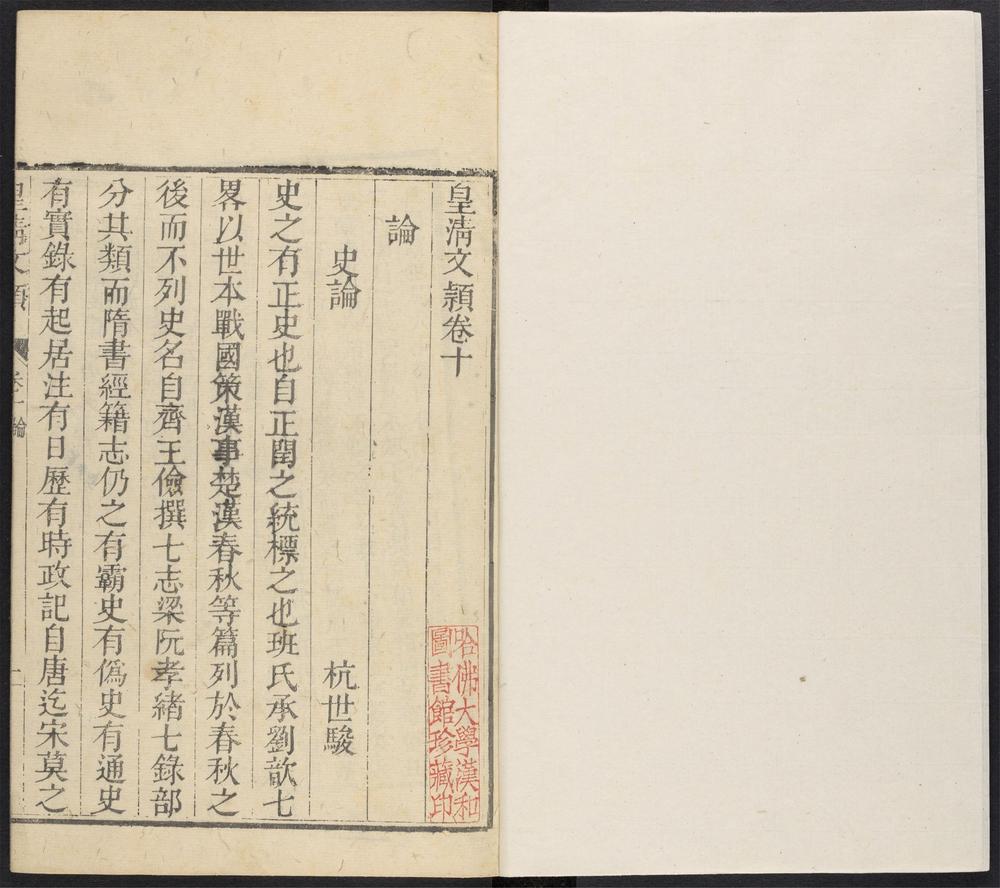 皇淸文穎卷十
論
史論
杭世駿
史之有正史也自正閏之統標之也班氏承劉歆七
畧以世本戰國策漢事楚漢春秋等篇列於春秋之
後而不列史名自齊王儉撰七志梁阮孝緒七錄部
分其類而隋書經籍志仍之有霸史有僞史有通史
有實錄有起居注有日歷有時政記自唐迄宋莫之
皇淸文穎
論
哈佛大學漢和
圖書館珍藏印